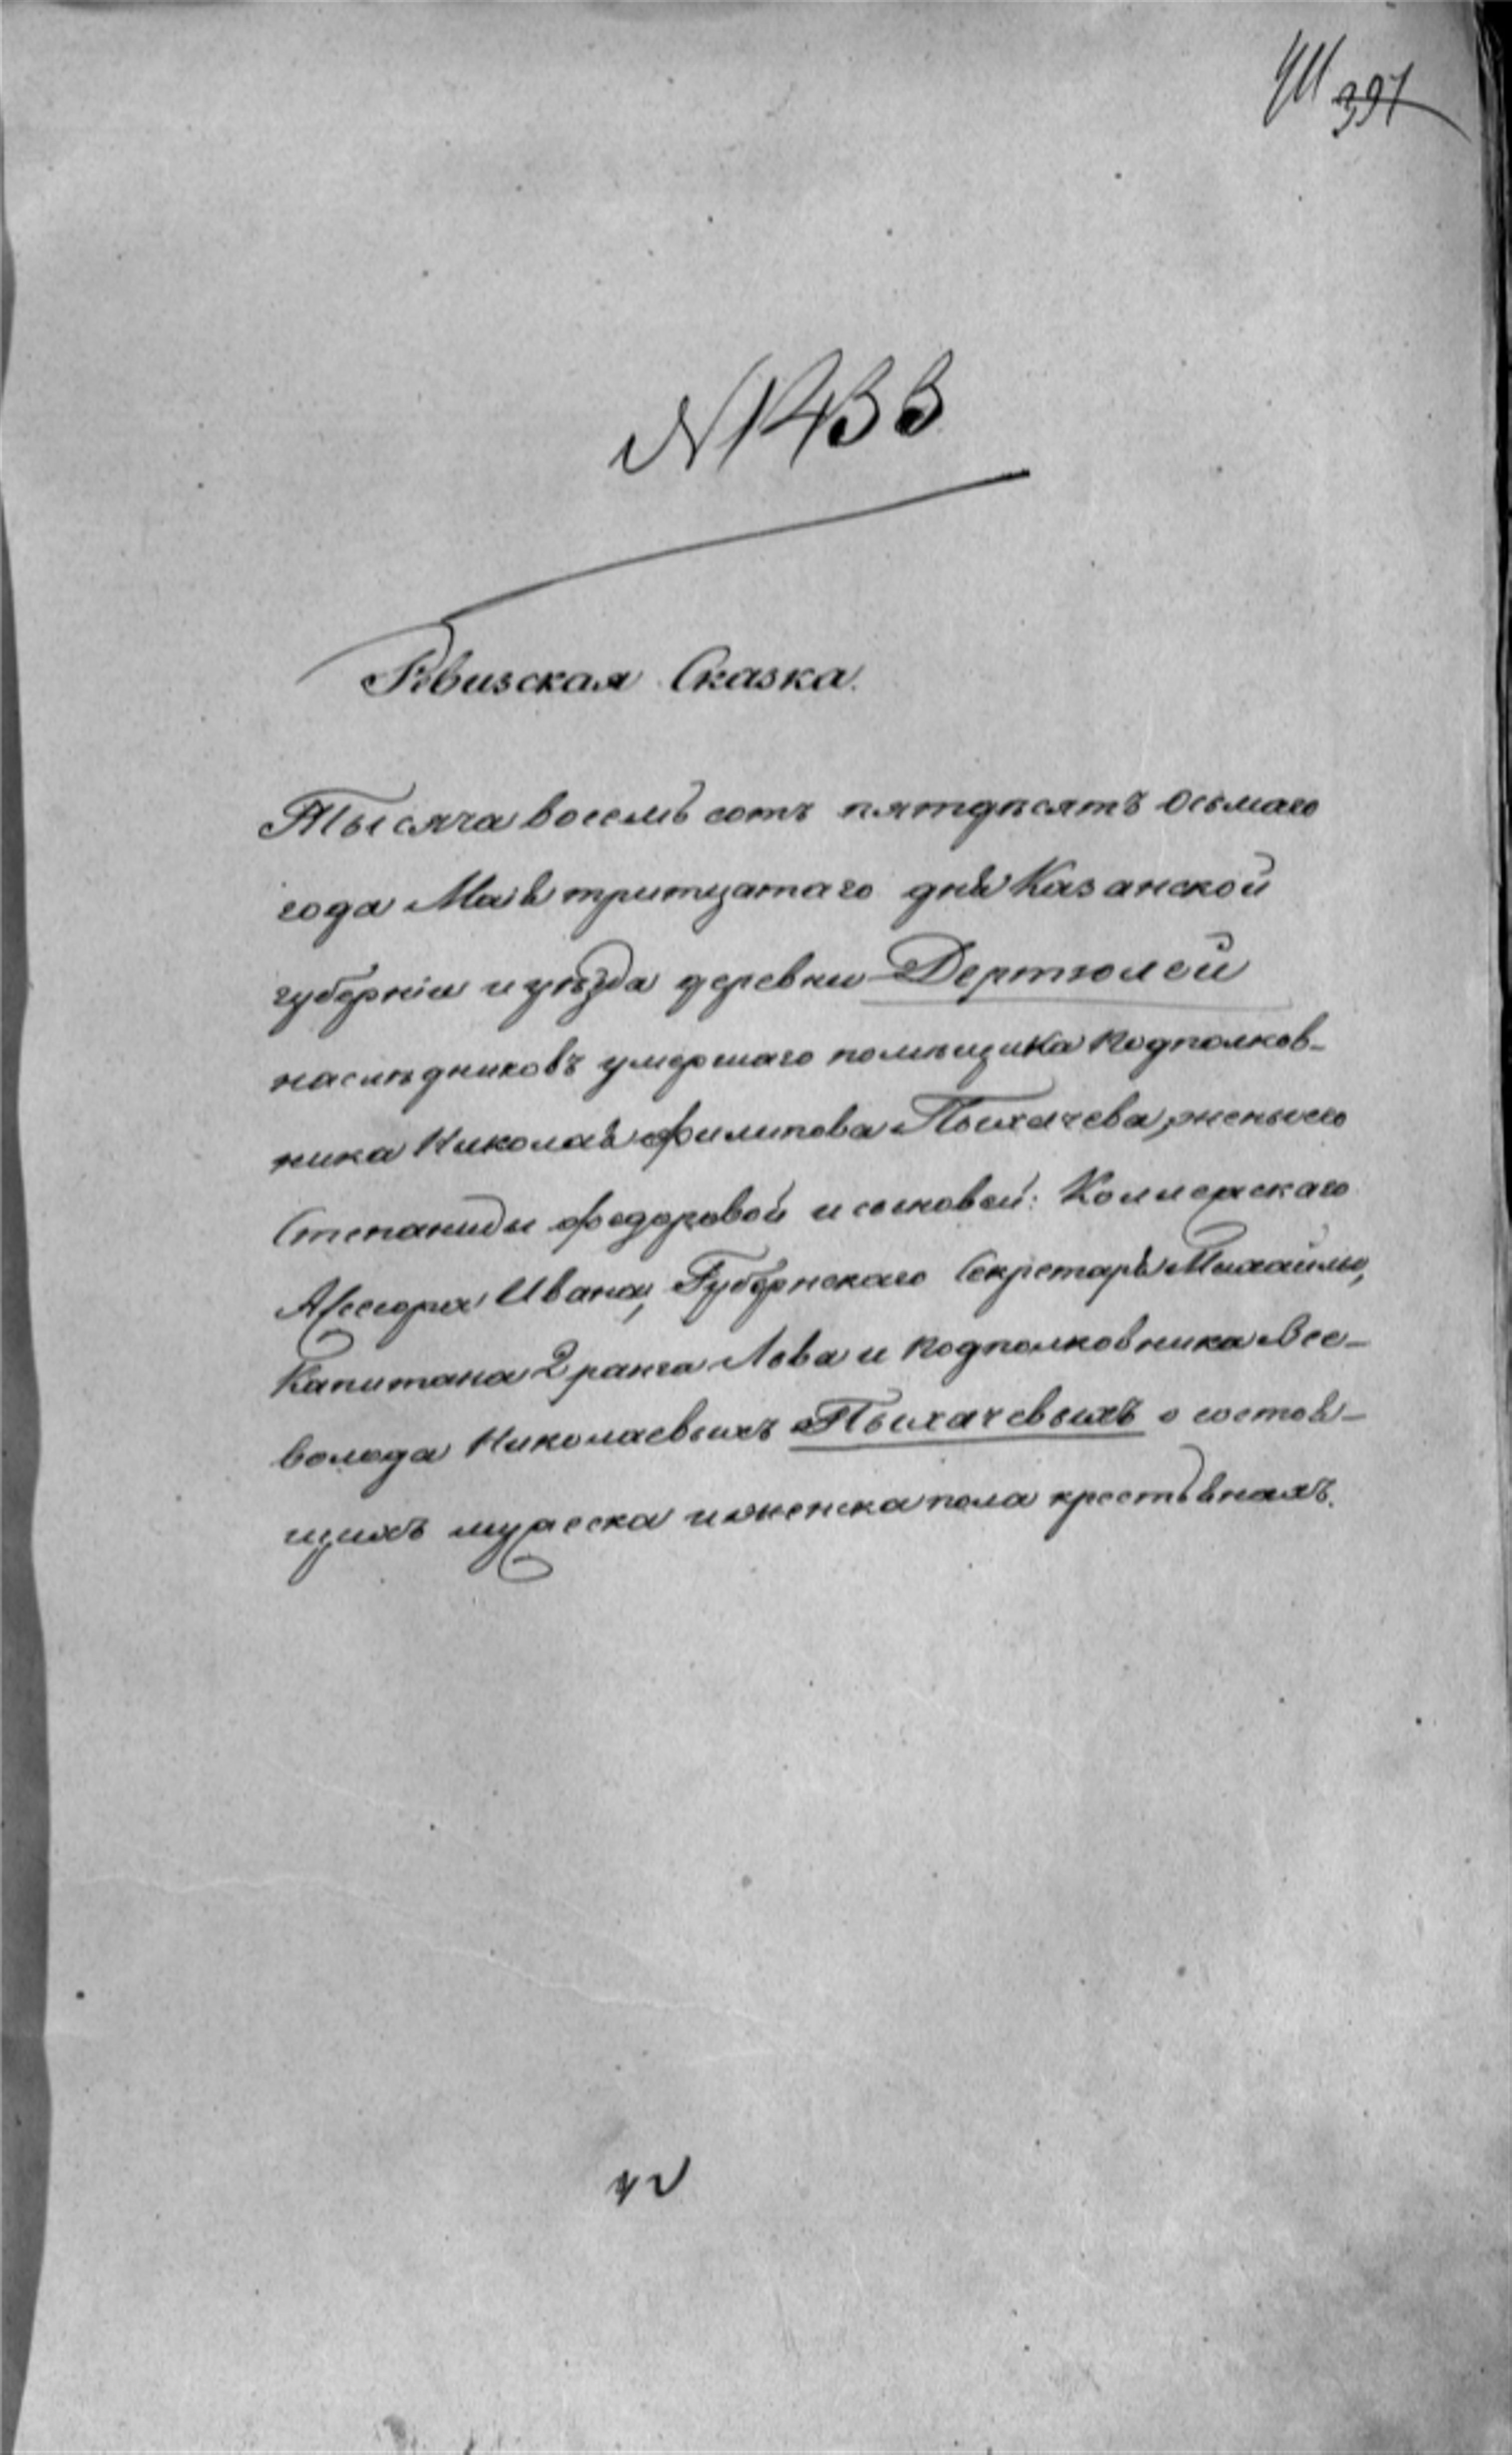 411 397
№ 1433
Ревизская Сказка.
Тысяча восемь сотъ пятдесятъ осьмаго
года Маія тритцатаго дня Казанской
губерніи и уѣзда деревни Дертюлей
наслѣдниковъ умершаго помѣщика Подполков-
ника Николая Филипова Пыхачева, жены его
Степаниды Федоровой и сыновей: Коллежскаго
Ассесора Ивана, Губернскаго Секретаря Михаилы,
Капитана 2 ранга Льва и Подполковника Все-
волода Николаевыхъ Пыхачевыхъ о состоя-
щихъ мужеска и женска пола крестьянахъ.